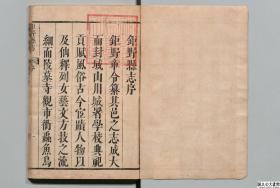 鉅野縣志序
鉅野章令纂其邑之志成大
而封域山川城署學校典祀
貢賦風俗古今宦蹟人物以
及仙釋列女藝文方技之流
細而陵墓寺觀市衢蟲魚鳥